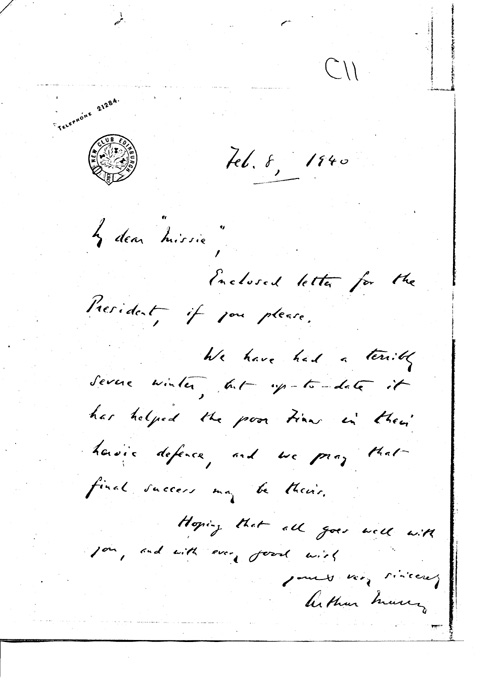 C11
TELEPHONE 21284.
NEW CLUB EDINBURGH
Feb. 8, 1940
My dear "Missie",
Enclosed letter for the
President, if you please.
We have had a terribly
severe winter, but up-to-date it
has helped the poor Finns in their
heroic defence, and we pray that
final success may be theirs.
Hoping that all goes well with
you, and with every good wish
yours very sincerely
Arthur Murray